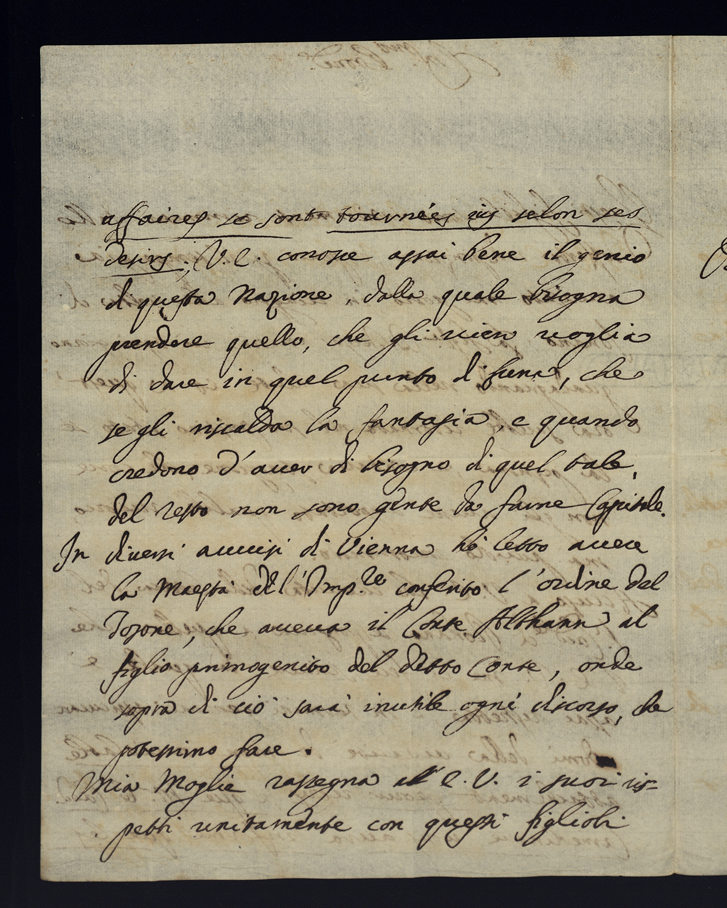 affaires se sont tournées icy selon ses
desirs; V. E. conosce assai bene il genio
di questa Nazione, dalla quale bisogna
prendere quello, che gli vien voglia
di dare in quel punto di Luna, che
se gli riscalda la fantasia, e quando
credono d'aver di bisogno di quel tale,
del resto non sono gente da farne Capitale.
In diversi avvisi di Vienna hò letto avere
la Maestà dell'Imp.re conferito l'ordine del
Tosone, che aveva il Conte Althann al
figlio primogenito del detto Conte, onde
sopra di ciò sarà inutile ogni discorso, che
potessimo fare.
Mia Moglie rassegna all'E. V. i suoi ris=
petti unitamente con questi figlioli